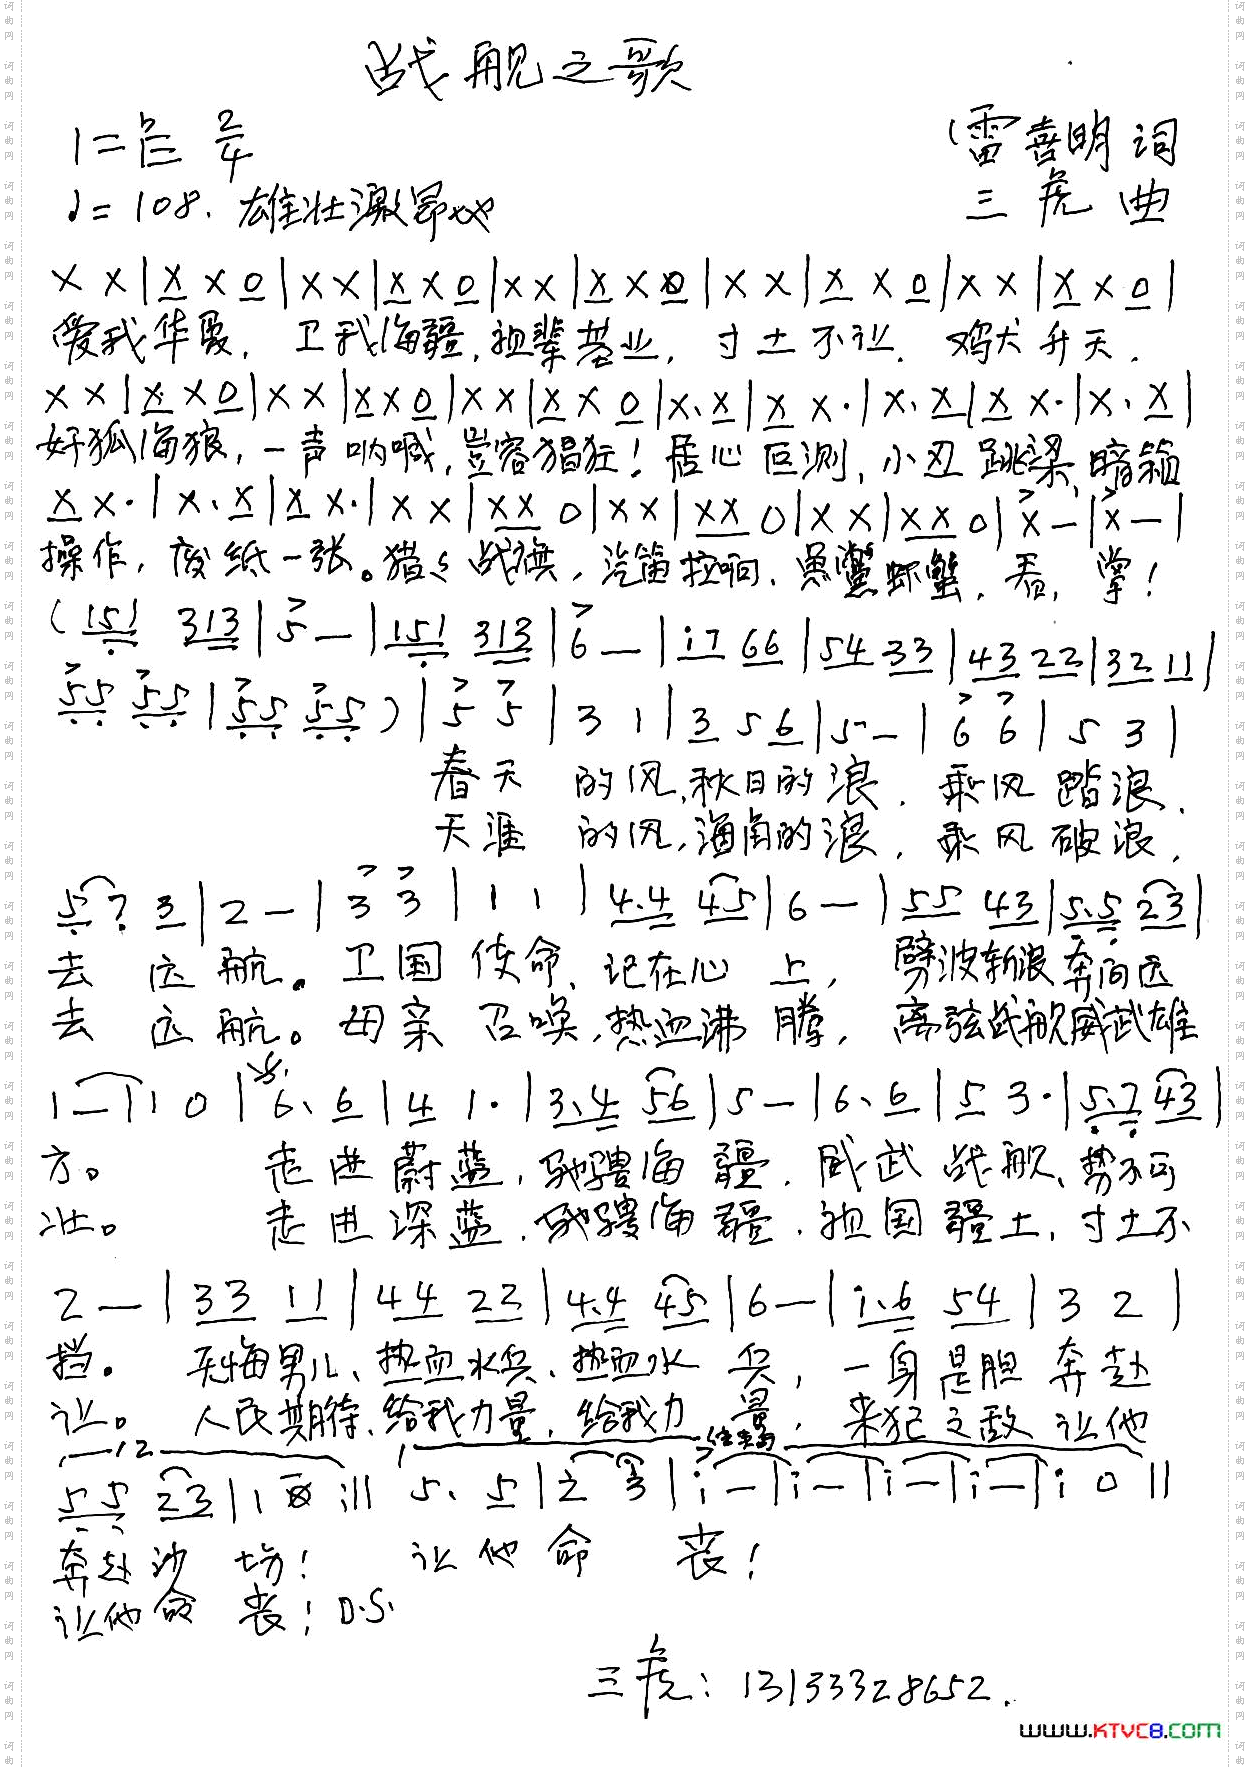 战舰之歌
1=bE 2/4
(雷喜明 词
♩=108. 雄壮激昂地
三虎 曲
X X | X X 0 | X X | X X 0 | X X | X X 0 | X X | X X 0 | X X | X X 0 |
爱我华夏, 卫我海疆, 祖辈基业, 寸土不让. 鸡犬升天.
X X | X X 0 | X X | X X 0 | X X | X X 0 | X. X | X X. | X. X | X X. | X. X |
奸狐海狼, 一声呐喊, 岂容猖狂! 居心叵测, 小丑跳梁, 暗箱
X X. | X. X | X X. | X X | X X 0 | X X | X X 0 | X X | X X 0 | X - | X - |
操作, 废纸一张。猎々战旗, 汽笛拉响, 鱼鳖虾蟹, 看, 掌!
(151 313 | 5 - | 151 313 | 6 - | i7 66 | 54 33 | 43 22 | 32 11 |
55 55 | 55 55 ) | 5 5 | 3 1 | 3 5 6 | 5 - | 6 6 | 5 3 |
春天 的风, 秋日的浪, 乘风踏浪,
天涯 的风, 海角的浪, 乘风破浪,
5 7 3 | 2 - | 3 3 | 1 1 | 4.4 45 | 6 - | 55 43 | 5.5 23 |
去 远航。卫国使命, 记在心 上, 劈波斩浪奔向远
去 远航。母亲召唤, 热血沸腾, 离弦战舰威武雄
1 - | 1 0 | 6. 6 | 4 1. | 3.4 56 | 5 - | 6. 6 | 5 3. | 5.7 43 |
方。 走进蔚蓝, 驰骋海疆. 威武战舰, 势不可
壮。 走进深蓝, 驰骋海疆. 祖国疆土, 寸土不
2 - | 33 11 | 44 22 | 4.4 45 | 6 - | i.6 54 | 3 2 |
挡。 无悔男儿、热血水兵、热血水 兵, 一身是胆奔赴
让。 人民期待, 给我力量, 给我力 量, 来犯之敌让他
12
55 23 | 1 0 :|| 5. 5 | 2 3 | i - | i - | i - | i - | i 0 ||
奔赴沙 场! 让他命 丧!
让他命 丧! D.S.
三虎: 13133328652.
www.KTVC8.com